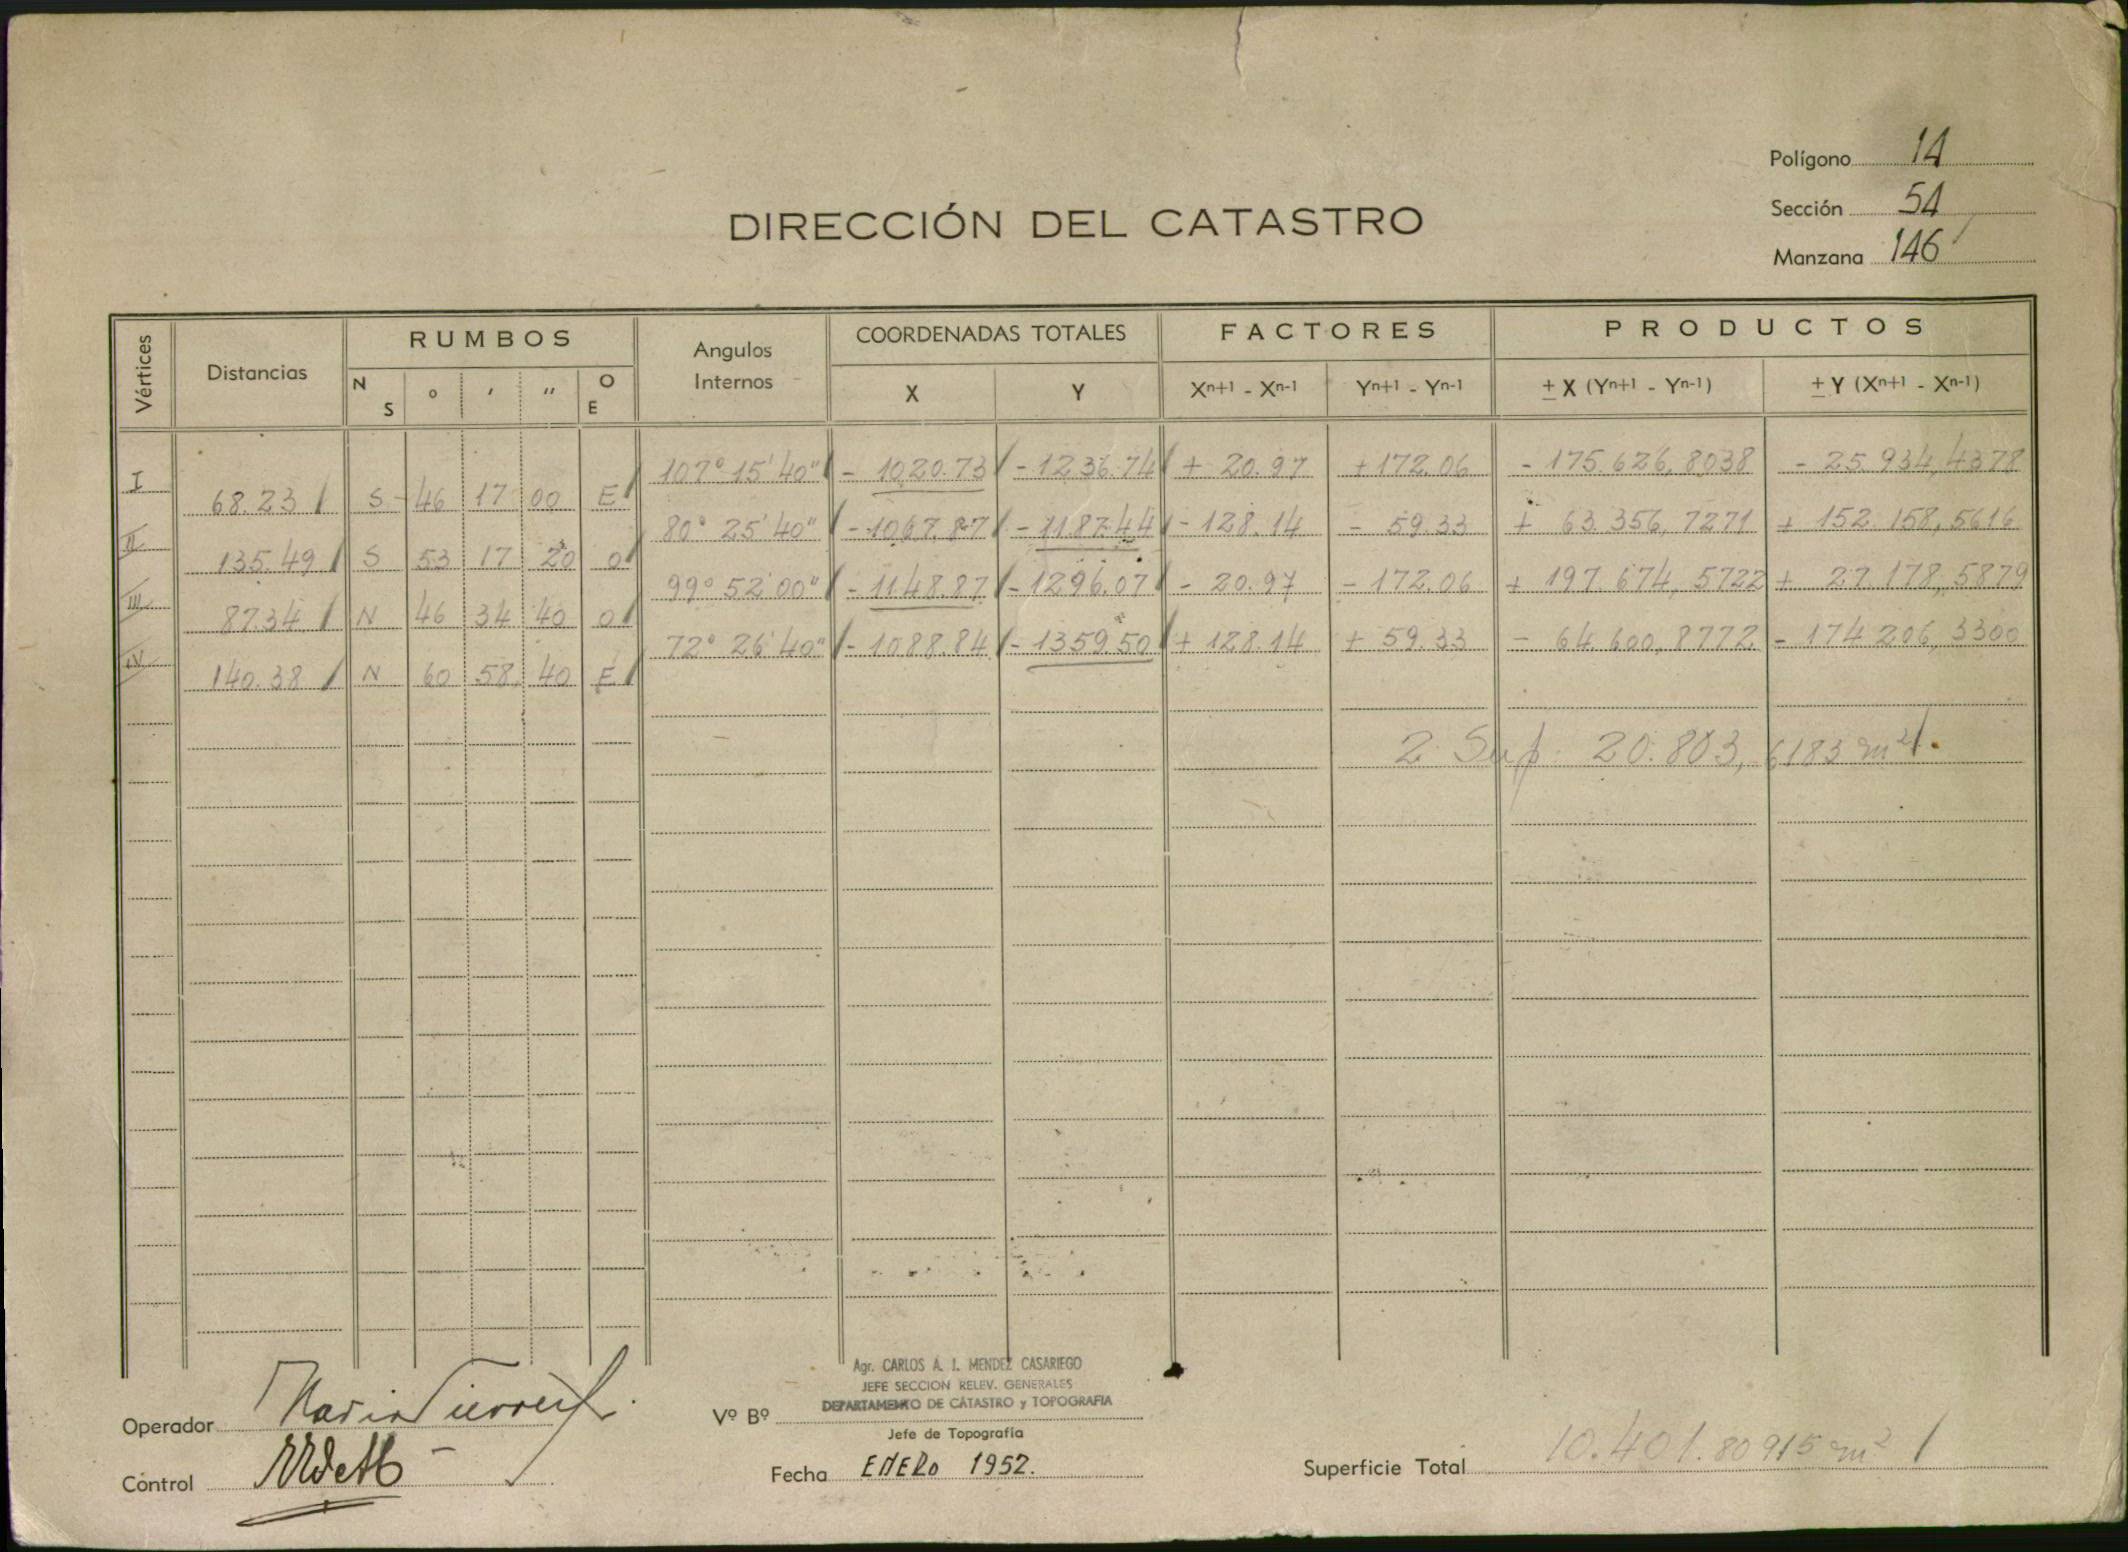 Polígono 14
DIRECCIÓN DEL CATASTRO
Sección 54
Manzana 146
Vértices Distancias RUMBOS Angulos Internos COORDENADAS TOTALES FACTORES PRODUCTOS
N S ° ' " O E X Y Xn+1 - Xn-1 Yn+1 - Yn-1 ± X (Yn+1 - Yn-1) ± Y (Xn+1 - Xn-1)
I 107° 15' 40" - 1020.73 - 1236.74 + 20.97 + 172.06 - 175.626,8038 - 25.934,4378
68.23 S 46 17 00 E
II 80° 25' 40" - 1067.87 - 1187.44 - 128.14 - 59.33 + 63.356,7271 + 152.158,5616
135.49 S 53 17 20 O
III 99° 52' 00" - 1148.87 - 1296.07 - 20.97 - 172.06 + 197.674,5722 + 27.178,5879
87.34 N 46 34 40 O
IV 72° 26' 40" - 1088.84 - 1359.50 + 128.14 + 59.33 - 64.600,8772 - 174.206,3300
140.38 N 60 58 40 E
2 Sup. 20.803,6183 m²
Agr. CARLOS A. I. MENDEZ CASARIEGO
JEFE SECCION RELEV. GENERALES
DEPARTAMENTO DE CATASTRO y TOPOGRAFIA
Operador
Vº Bº
Jefe de Topografía
Control
Fecha ENERO 1952.
Superficie Total 10.401.80 915 m²